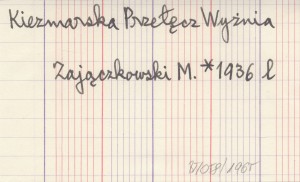 Kiezmarska Przełęcz Wyżnia
Zajączkowski M. *1936 l